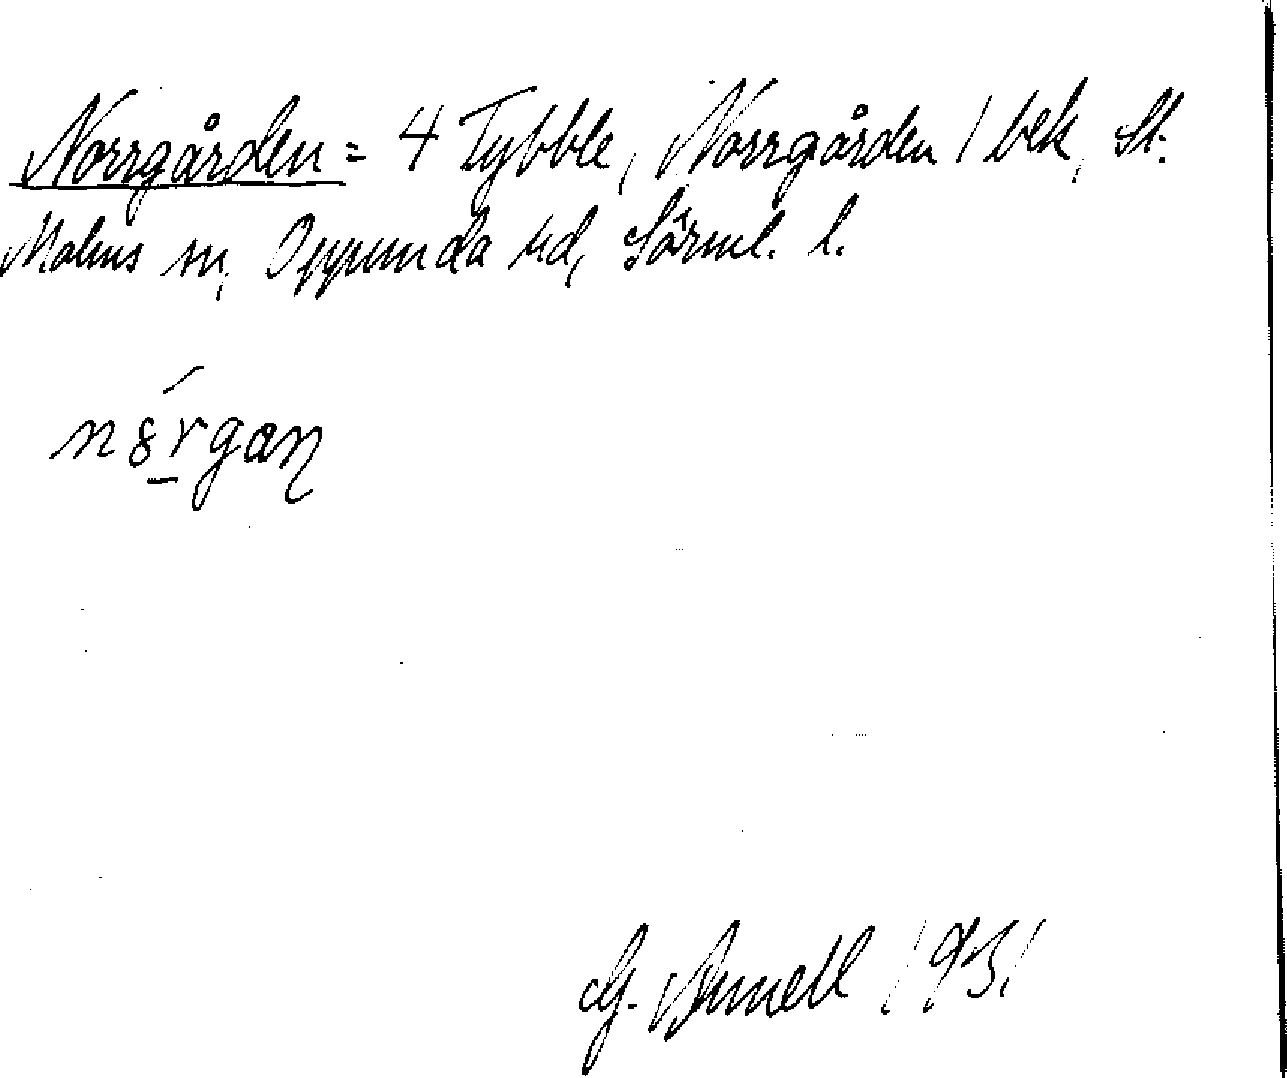 Norrgården = 4 Tybble, Norrgården 1 bek, St.
Malms sn, Oppunda hd, Sörml. l.
n8́r̲gaɳ
G. 1931